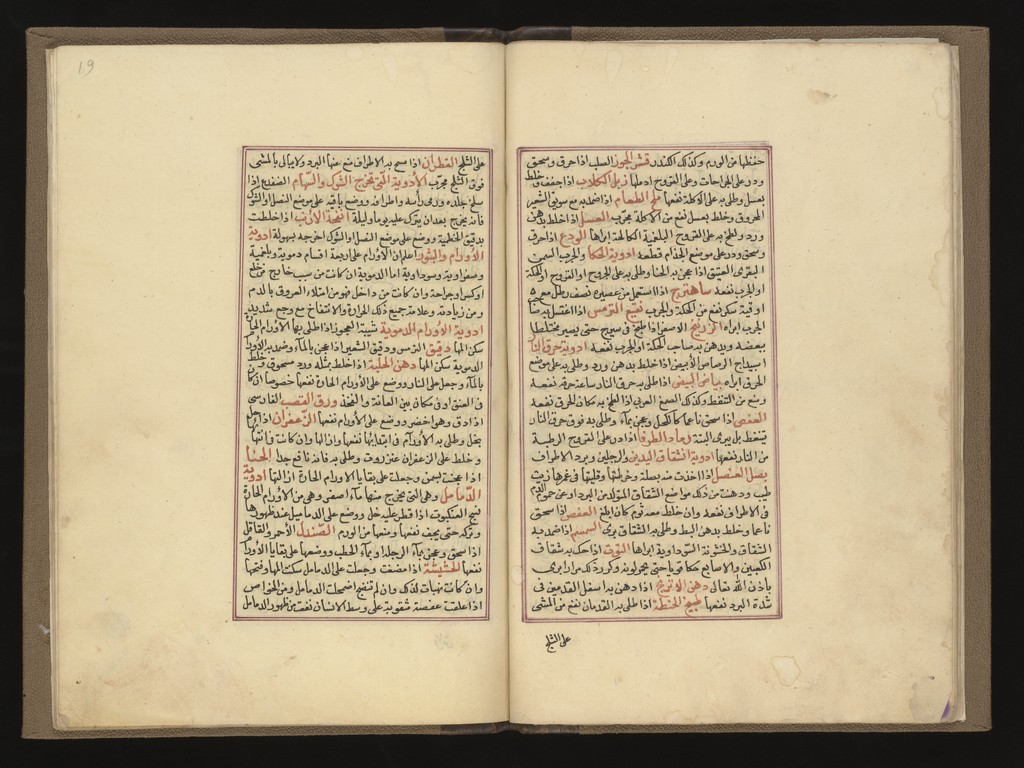 حفظها من الورم وكذلك الكندر قشر الجوز الصلب اذا حرق وسحق
وذر على الجراحات وعلى القروح ادملها زبل الكلاب اذا جفف وخلط
بعسل وطلى به على الاكلة نفعها ملح الطعام اذا ضمد به مع سويق الشعير
المحروق وخلط بعسل نفع من الاكلة مجرب العسل اذا خلط بدهن
ورد ولطخ به على القروح البلغمية الكالحة ابراها الودع اذا حرق
وسحق وذر على موضع الجذام قطعه ادوية الحكة والجرب السمن
البقرى العتيق اذا عجن به الحنا وطلى به على الجروح او القروح او الحكة
او الجرب نفعه ساهترج اذا استعمل من عصيره نصف رطل مع ٥
اوقية سكر نفع من الحكة والجرب نقيع الترمس اذا اغتسل به صاحب
الجرب ابراه الزرنيخ الاصفر اذا طبخ فى سيرج حتى يصير مختلطا
ببعضه ويدهن به صاحب الحكة او الجرب نفعه ادوية حرق النار
اسبيداج الرصاص الابيض اذا خلط بدهن ورد وطلى به على موضع
الحرق ابراه بياض البيض اذا طلى به حرق النار ساعة حرقه نفعه
ومنع من التنفط وكذلك الصمغ العربى اذا لطخ به مكان الحرق نفعه
العفص اذا سحق ناعما كالكحل وعجن بماء وطلى به فوق حرق النار
تنفط بل يبرى البتة رماد الطرفا اذا ذر على القروح الرطبة
من النار نفعها ادوية انشقاق اليدين والرجلين وبرد الاطراف
بصل العنصل اذا اخذت منه بصلة وخرطتها وقليتها فى غمرها زيت
طيب ودهنت من ذلك مواضع الشقاق المتولد من البرد او عن جموع الدم
فى الاطراف نفعه وان خلط معه ثوم كان ابلغ العفص اذا سحق
ناعما وخلط بدهن البط وطلى به الشقاق برى السمسم اذا ضمد به
الشقاق والخشونة السوداوية ابراها التوت اذا حك به شقاق
الكعبين والاصابع حكا قويا حتى يحمر لونه وكرر ذلك مرارا برى
باذن الله تعالى دهن الاترج اذا دهن به اسفل القدمين فى
شدة البرد نفعها طبيخ الحنظلة اذا طلى به القدمان نفع من المشى
على الثلج
١٩
على الثلج القطران اذا مسح به الاطراف منع عنها البرد ولا يبالى بالمشى
فوق الثلج مجرب الأدوية التى تخرج الشوك والسهام الضفدع اذا
سلخ جلده ورمى رأسه واطرافه ووضع باقيه على موضع النصل او الشوك
فانه يخرج بعد ان يترك عليه يوما وليلة انفحة الارنب اذا خلطت
بدقيق الخطمية ووضع على موضع النصل او الشوك اخرجه بسهولة ادوية
الأورام والبثور اعلم ان الاورام على اربعة اقسام دموية وبلغمية
وصفراوية وسوداوية اما الدموية ان كانت من سبب خارج من خلع
او كسر او جراحة وان كانت من داخل فهو من امتلاء العروق بالدم
ومن زيادته وعلامة جميع ذلك الحرارة والانتفاخ مع وجع شديد
ادوية الأورام الدموية شيبة العجوز اذا طلى بها الأورام الحارة
سكن المها دقيق الترمس ودقيق الشعير اذا عجن بالماء وضمد به الاورام
الدموية سكن المها دهن الحلبة اذا خلط بمثله ورد مسحوق وخلط
بالماء وجعل على النار ووضع على الأورام الحارة نفعها خصوصا ان كان
فى العنق او فى مكان بين العانة والفخذ ورق القصب الفارسى
اذا دق وهو اخضر ووضع على الأورام نفعها الزعفران اذا حل
بخل وطلى به الأورام فى ابتدائها نفعها وازالها وان كانت فى انتهائها
وخلط على الزعفران عنزروت وطلى به فانه نافع جدا الحنا
اذا عجنت بسمن وجعلت على بقايا الاورام الحارة ازالتها ادوية
الدمامل وهى التى يخرج منها ماء اصفر وهى من الأورام الحارة
نسج العنكبوت اذا قطر عليه خل ووضع على الدماميل عند ظهورها
وترك حتى يجف نفعها ومنعها من الورم الصندل الأحمر والقاقل
اذا سحق وعجن بماء الرجلة او بماء الحطب ووضعها على بقايا الأورام
نفعها الحشيشة اذا مضغت وجعلت على الدمامل سكنت المها وفتحها
وان كانت تهيأت لذلك وان لم تنفتح اضمحلت الدمامل ومن الخواص
اذا علقت عفصة مثقوبة على وسط الانسان نفعت من ظهور الدمامل